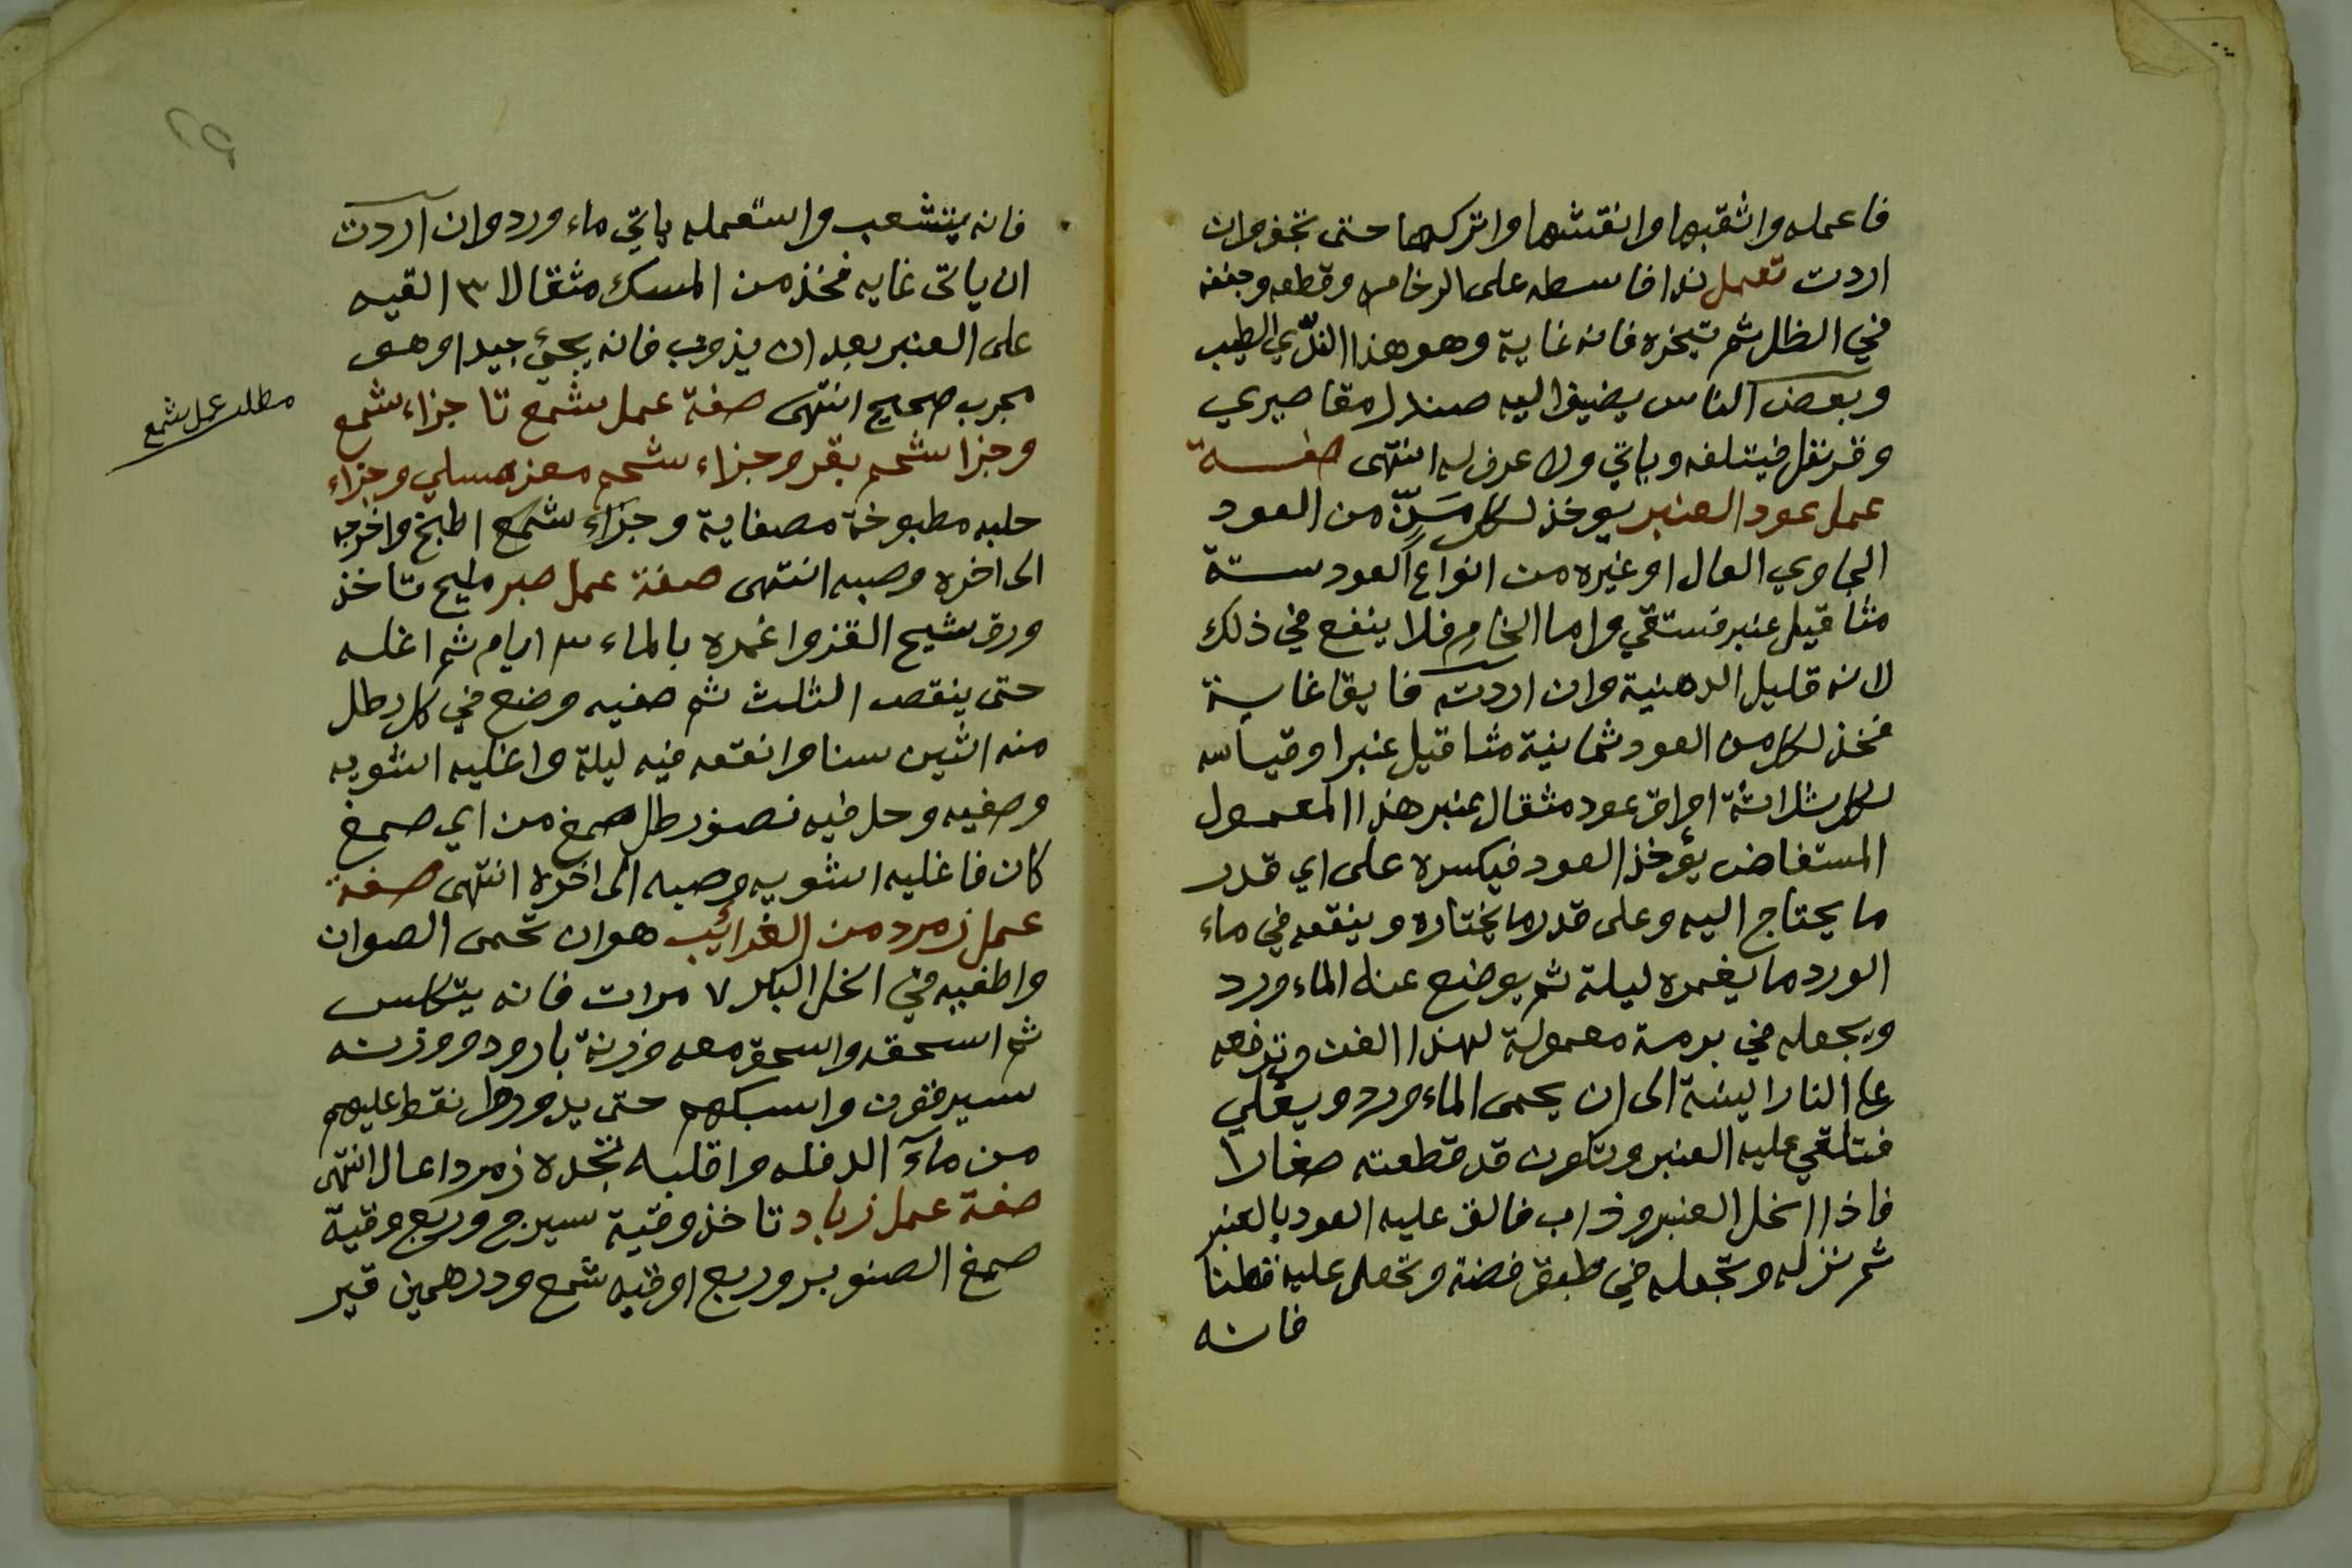 فاعمله واثقبها وانقشها واتركها حتى تجف وان
اردت تعمل ندا فابسطه على الرخامه وقطعه وجففه
في الظل ثم تبخره فانه غاية وهو هذا الندّي الطيب
وبعض الناس يضيف اليه صندل مقاصيري
وقرنفل فيتلفه وياتي ولا عرف له انتهى صفة
عمل عود العنبر يوخذ لكل مَنّ من العود
الجاوي العال او غيره من انواع العود ستة
مثاقيل عنبر فستقي واما الخام فلا ينفع في ذلك
لانه قليل الدهنية وان اردته فايقا غاية
فخذ لكل من العود ثمانية مثاقيل عنبرا وقياسه
لكل ثلاثة اواق عود مثقال عنبر هذا المعمول
المستفاض يؤخذ العود فيكسره على اي قدر
ما يحتاج اليه وعلى قدر ما يختاره وينقعه في ماء
الورد ما يغمره ليلة ثم يوضع عنه الماء ورد
ويجعله في برمة معمولة لهذا الفن وترفعه
على النار لينة الى ان يحمى الماء ورد ويغلي
فتلقي عليه العنبر وتكون قد قطعته صغارا
فاذا انحل العنبر وذاب فالق عليه العود بالعنبر
ثم نزله وتجعله في طبق فضة وتجعل عليه قطنا
فانه
فانه يتشعب واستعمله ياتي ماء ورد وان اردت
ان ياتى غايه فخذ من المسك مثقالا ٣ القيه
على العنبر بعد ان يذوب فانه يجئ جيدا وهو
مجرب صحيح انتهى صفة عمل شمع تا جزاء شمع
وجزا شحم بقر وجزاء شحم معز مسلي وجزاء
حلبه مطبوخة مصفاية وجزاء شمع اطبخ واخرجه
الى اخره وصبه انتهى صفة عمل صبر مليح تاخذ
ورق شيح القز واغمره بالماء ٣ ايام ثم اغله
حتى ينقص الثلث ثم صفيه وضع في كل رطل
منه اثنين سنا وانقعه فيه ليلة واغليه اشويه
وصفيه وحل فيه نصف رطل صمغ من اي صمغ
كان فاغليه اشويه وصبه الى اخره انتهى صفة
عمل زمرد من الغرائب هو ان تحمى الصوان
واطفيه في الخل البكر ٧ مرات فانه يتكلس
ثم اسحقه واسحق معه وزنة بارود ووزنه
سيرقون واسبكهم حتى يدوروا نقط عليهم
من مآء الدفله واقلبه تجده زمردا عال انتهى
صفة عمل زباد تاخذ وقية سيرج وربع وقية
صمغ الصنوبر وربع اوقيه شمع ودرهمين قير
مطلب عمل شمع